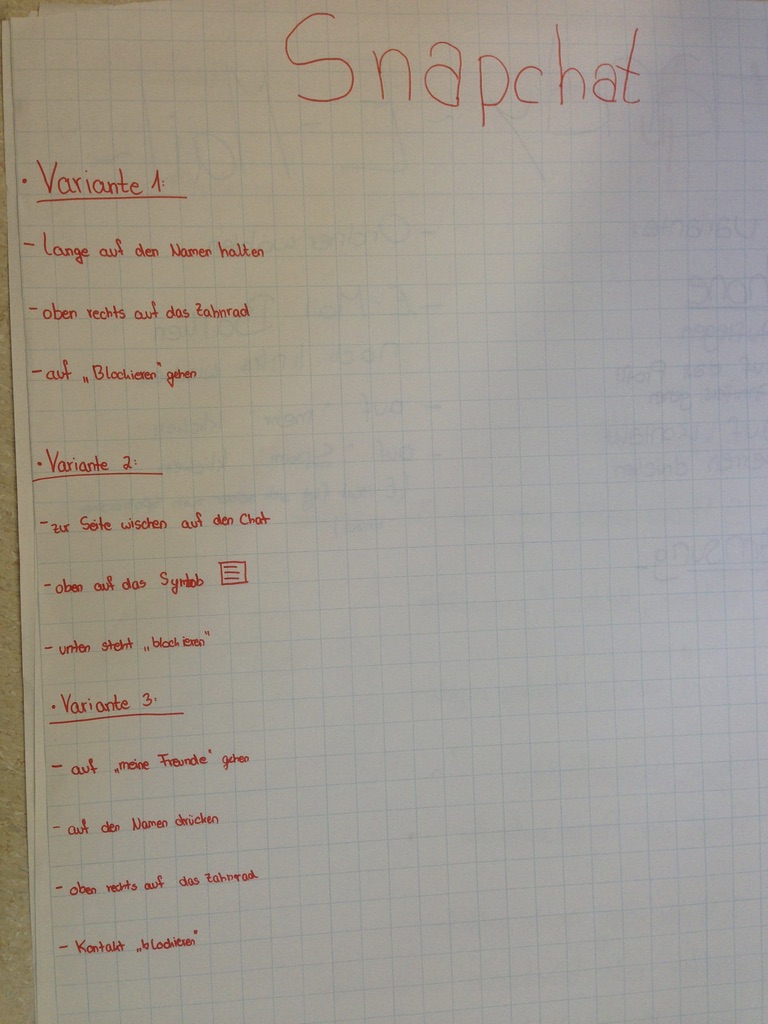 Snapchat
• Variante 1:
- Lange auf den Namen halten
- oben rechts auf das Zahnrad
- auf „Blockieren" gehen
• Variante 2:
- zur Seite wischen auf den Chat
- oben auf das Symbob
- unten steht „blockieren"
• Variante 3:
- auf „meine Freunde" gehen
- auf den Namen drücken
- oben rechts auf das Zahnrad
- Kontakt „blockieren"